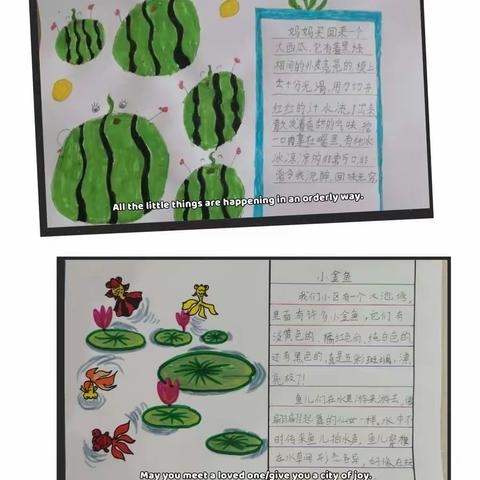 妈妈买回来一个
大西瓜,它有着墨绿
相间的外皮亮亮的,摸上
去十分光滑,用刀切开
红红的汁水流了出来
散发着
一口
冰凉
All the little things are happening in an orderly way.
小金鱼
我们小区有一个大池塘,
里面有许多小金鱼,它们有
淡黄色的、橘红色的、纯白色的
还有黑色的,真是五彩斑斓,漂
亮极了!
鱼儿们在水里游来游去,像
翩翩起舞的仙女一样。水中不
时传来鱼儿拍水声,鱼儿穿梭
在水草间
May you meet a loved one/give you a city of joy.